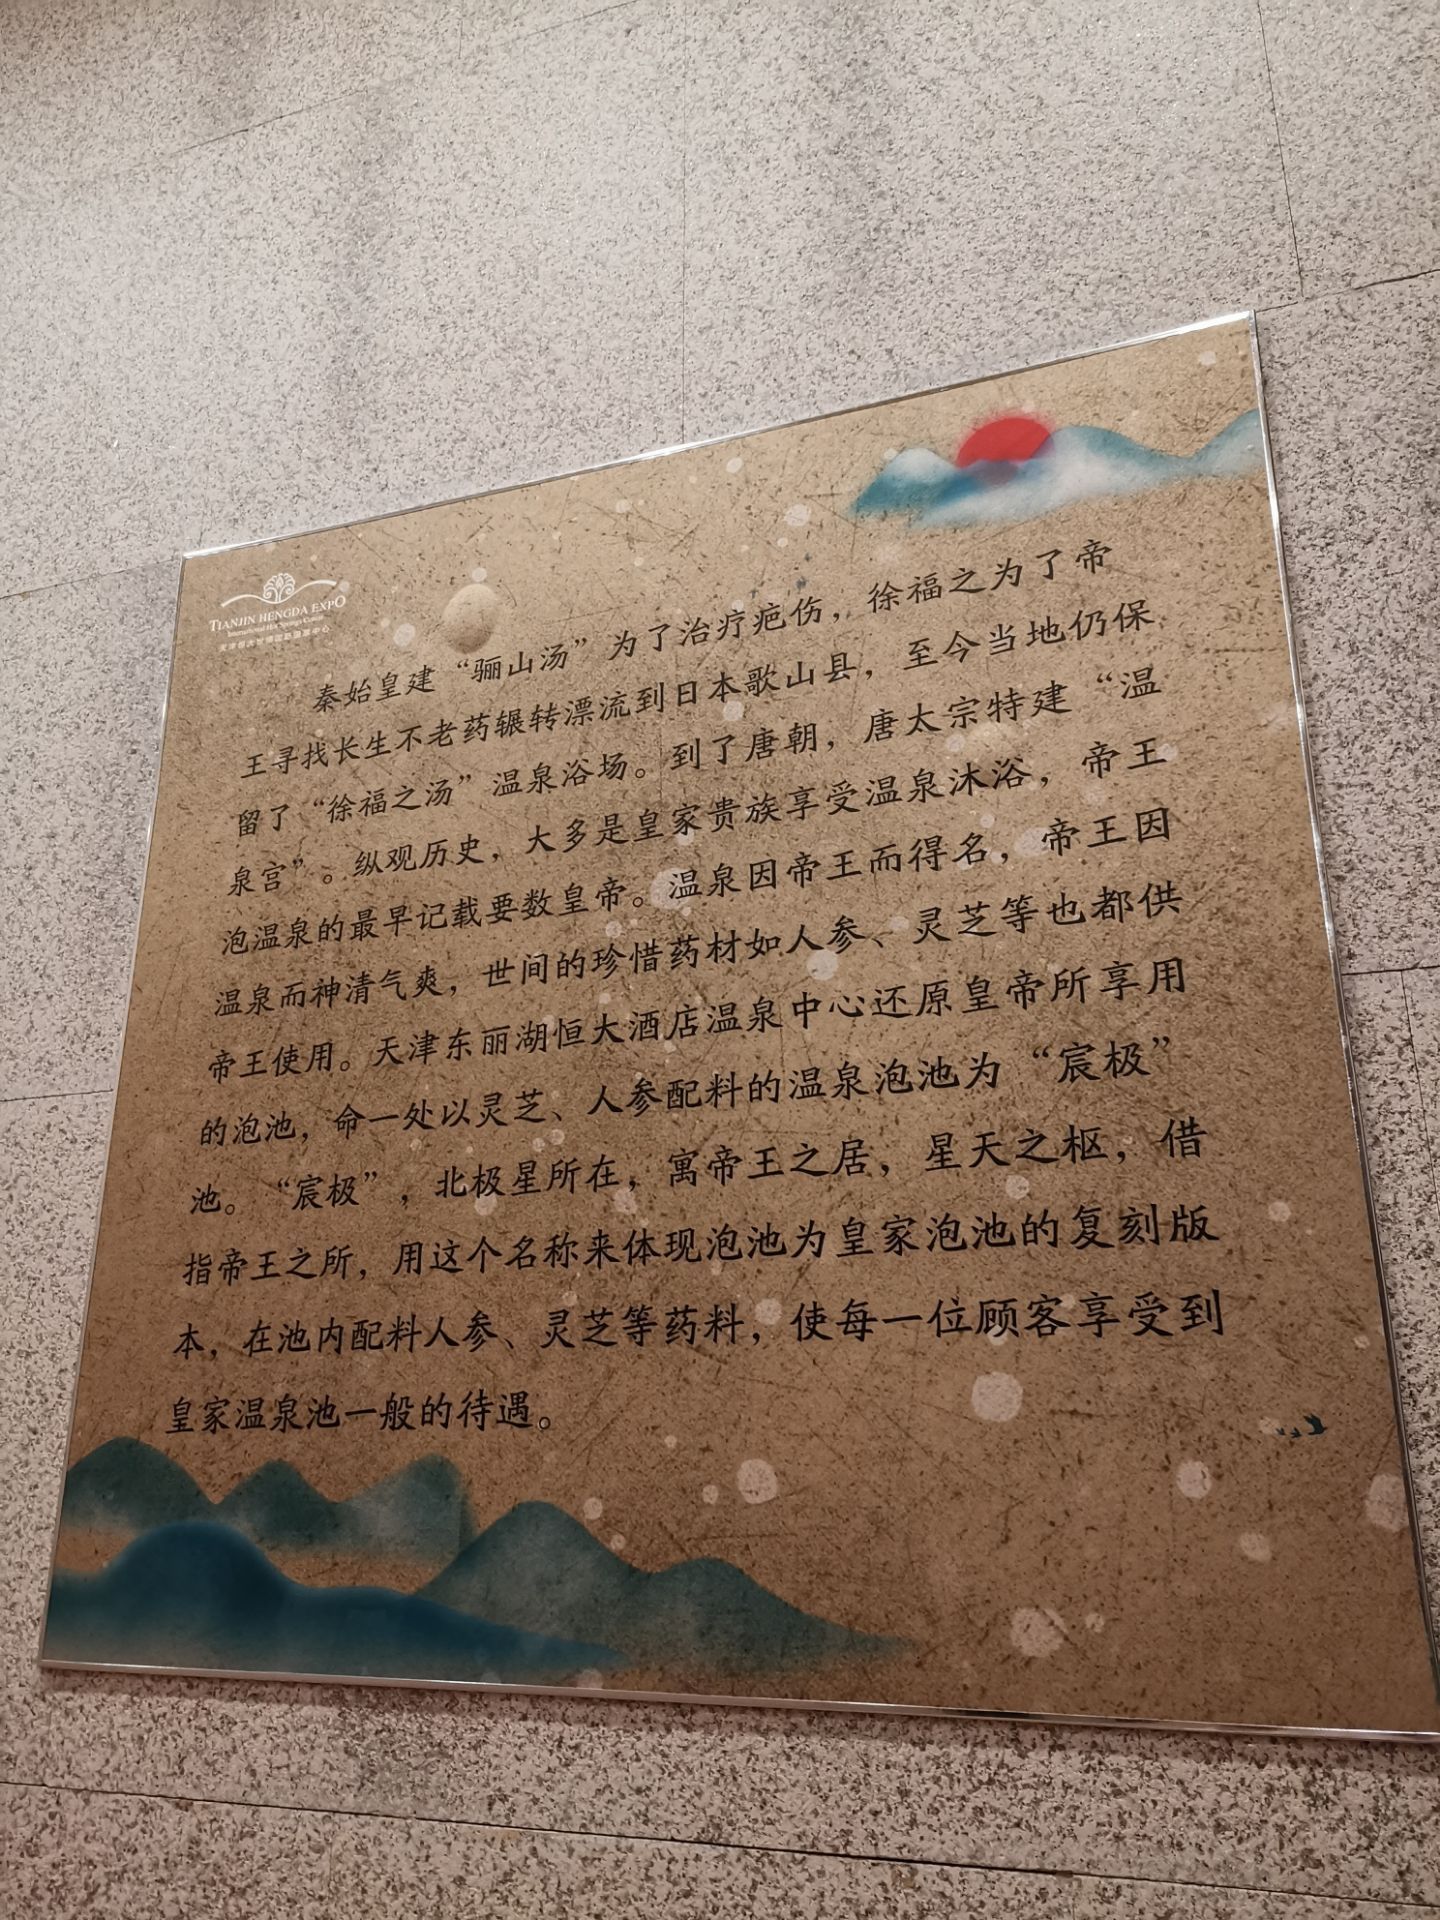 TIANJIN HENGDA EXPO
International Hot Springs Center
秦始皇建“骊山汤”为了治疗疤伤，徐福之为了帝
王寻找长生不老药辗转漂流到日本歌山县，至今当地仍保
留了“徐福之汤”温泉浴场。到了唐朝，唐太宗特建“温
泉宫”。纵观历史，大多是皇家贵族享受温泉沐浴，帝王
泡温泉的最早记载要数皇帝。温泉因帝王而得名，帝王因
温泉而神清气爽，世间的珍惜药材如人参、灵芝等也都供
帝王使用。天津东丽湖恒大酒店温泉中心还原皇帝所享用
的泡池，命一处以灵芝、人参配料的温泉泡池为“宸极”
池。“宸极”，北极星所在，寓帝王之居，星天之枢，借
指帝王之所，用这个名称来体现泡池为皇家泡池的复刻版
本，在池内配料人参、灵芝等药料，使每一位顾客享受到
皇家温泉池一般的待遇。